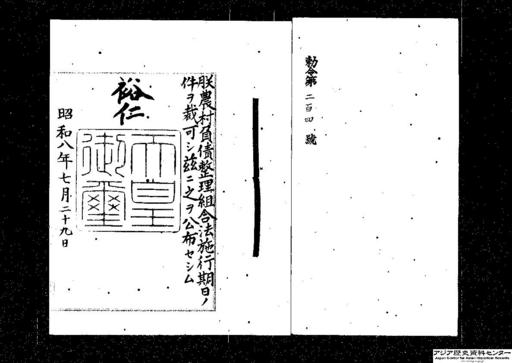 勅令第二百四號
朕農村負債整理組合法施行期日ノ
件ヲ裁可シ茲ニ之ヲ公布セシム
裕仁
天皇御璽
昭和八年七月二十九日
アジア歴史資料センター
Japan Center for Asian Historical Records